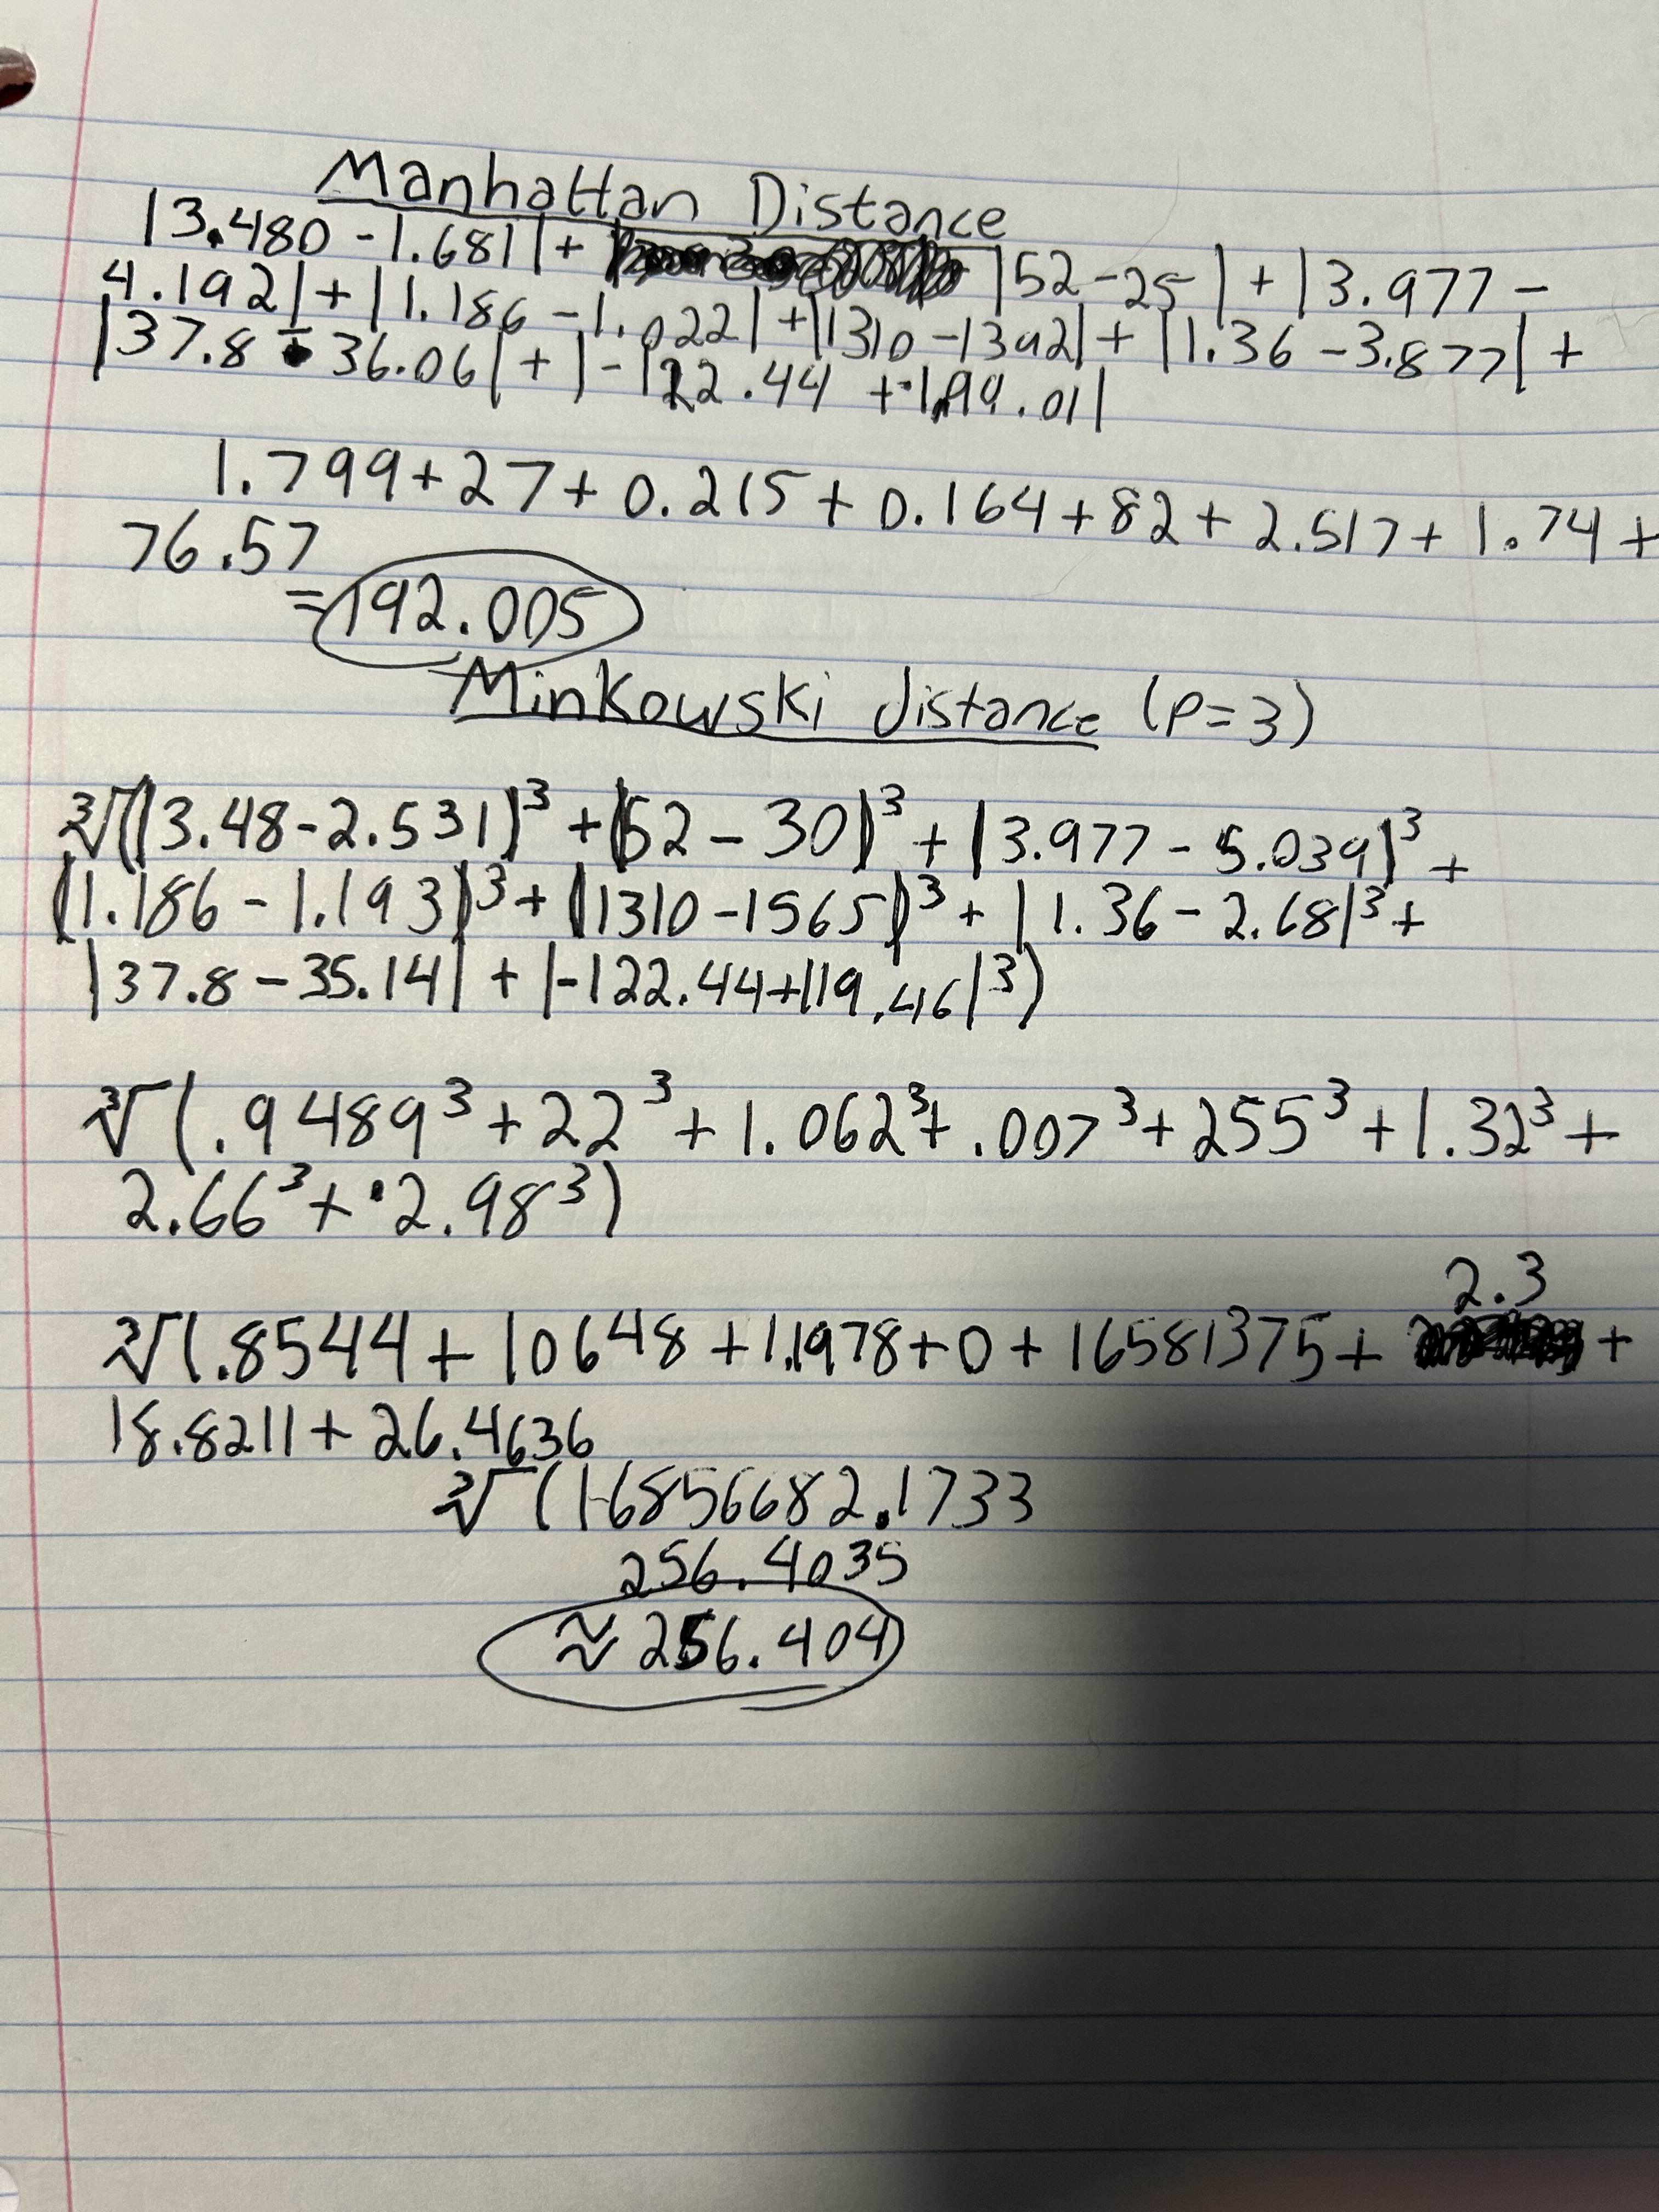 Manhattan Distance
|3.480 - 1.681| + |52-25| + |3.977 -
4.192| + |1.186 - 1.022| + |1310 - 1392| + |1.36 - 3.877| +
|37.8 - 36.06| + |-122.44 + 199.01|
1.799 + 27 + 0.215 + 0.164 + 82 + 2.517 + 1.74 +
76.57
= 192.005
Minkowski distance (p=3)
∛(|3.48 - 2.531|³ + |52 - 30|³ + |3.977 - 5.039|³ +
|1.186 - 1.193|³ + |1310 - 1565|³ + |1.36 - 2.68|³ +
|37.8 - 35.14| + |-122.44 + 119.46|³)
∛(.9489³ + 22³ + 1.062³ + .007³ + 255³ + 1.32³ +
2.66³ + 2.98³)
2.3
∛(.8544 + 10648 + 1.1978 + 0 + 16581375 + +
18.8211 + 26.4636
∛(16856682.1733
256.4035
≈ 256.404